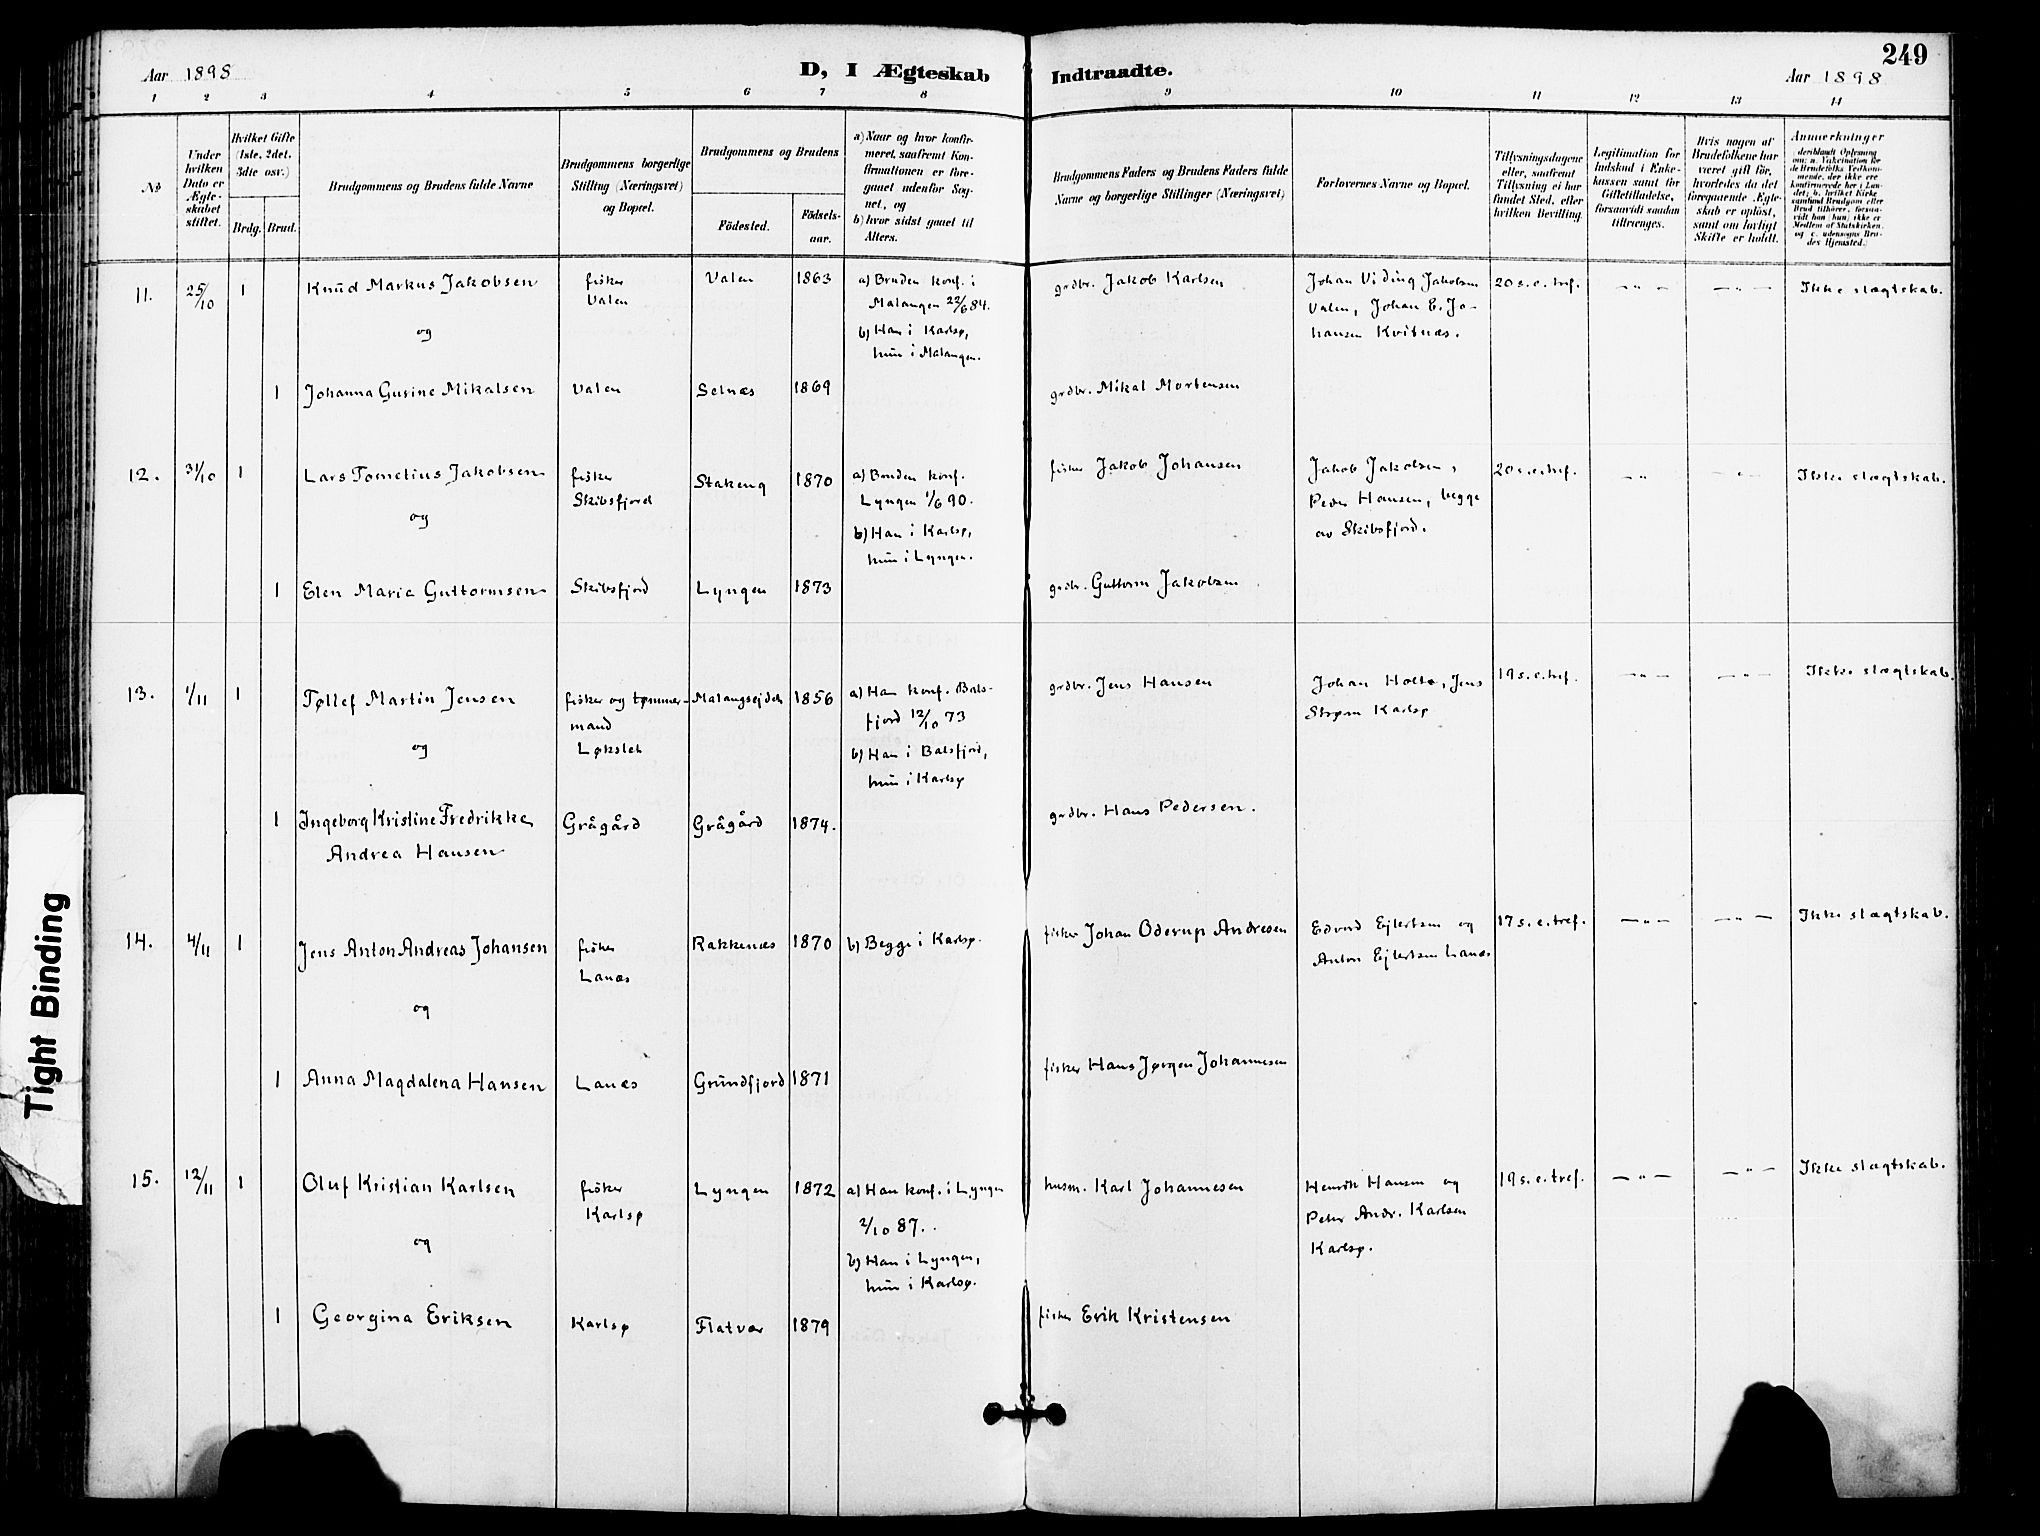 249
Aar 1898
D, I Ægteskab
Indtraadte.
Aar 1898
1 2 3 4 5 6 7 8 9 10 11 12 13 14
No
Under hvilken Dato er Ægteskabet stiftet.
Hvilket Gifte (1ste, 2det, 3die osv.)
Brdg. Brud.
Brudgommens og Brudens fulde Navne
Brudgommens borgerlige Stilling (Næringsvei) og Bopæl.
Brudgommens og Brudens
Födested.
Födsels-aar.
a) Naar og hvor konfir-
meret, saafremt Kon-
firmationen er fore-
gaaet udenfor Sog-
net, og
b) hvor sidst gaaet til
Alters.
Brudgommens Faders og Brudens Faders fulde
Navne og borgerlige Stillinger (Næringsvei)
Forlovernes Navne og Bopæl.
Tillysningsdagene
eller, saafremt
Tillysning ei har
fundet Sted, efter
hvilken Bevilling.
Legitimation for
Indskud i Enke-
kassen samt for
Giftetilladelse,
forsaavidt saadan
tiltrænges.
Hvis nogen af
Brudefolkene har
været gift før,
hvorledes da det
foregaaende Ægte-
skab er opløst,
samt om lovligt
Skifte er holdt.
Anmærkninger
11. 25/10 1 Knud Markus Jakobsen fisker Valen Valen 1863
a) Bruden konf. i
Malangen 22/6 84.
b) Han i Karlsø,
hun i Malangen.
grdbr. Jakob Karlsen
Johan Viding Jakobsen
Valen, Johan E. Jo-
hansen Kvitnæs.
20 s. e. tref. — " — — " — Ikke slægtskab.
og
1 Johanna Gurine Mikalsen Valen Selnæs 1869
grdbr. Mikal Mortensen
12. 31/10 1 Lars Tometius Jakobsen fisker Skibsfjord Stakeng 1870
a) Bruden konf.
Lyngen 1/6 90.
b) Han i Karlsø,
hun i Lyngen.
fisker Jakob Johansen
Jakob Jakobsen,
Peder Hansen, begge
av Skibsfjord.
20 s. e. tref. — " — — " — Ikke slægtskab.
og
1 Elen Maria Guttormsen Skibsfjord Lyngen 1873
grdbr. Guttorm Jakobsen
13. 1/11 1 Tøllef Martin Jensen fisker og tømmer-
mand
Løkslet
Malangsejdet 1856
a) Han konf. Bals-
fjord 12/10 73
b) Han i Balsfjord,
hun i Karlsø
grdbr. Jens Hansen
Johan Holte, Jens
Strøm Karlsø
19 s. e. tref. — " — — " — Ikke slægtskab.
og
1 Ingeborg Kristine Fredrikke
Andrea Hansen
Grågård Grågård 1874.
grdbr. Hans Pedersen.
14. 4/11 1 Jens Anton Andreas Johansen fisker Lanæs Rakkenæs 1870
b) Begge i Karlsø.
fisker Johan Oderup Andresen
Edvard Ejlertsen og
Anton Ejlertsen Lanæs
17 s. e. tref. — " — — " — Ikke slægtskab.
og
1 Anna Magdalena Hansen Lanæs Grundfjord 1871
fisker Hans Jørgen Johannesen
15. 12/11 1 Oluf Kristian Karlsen fisker Karlsø Lyngen 1872
a) Han konf. i Lyngen
2/10 87.
b) Han i Lyngen,
hun i Karlsø.
husm. Karl Johannesen
Henrik Hansen og
Peter Andr. Karlsen
Karlsø.
19 s. e. tref. — " — — " — Ikke slægtskab.
og
1 Georgina Eriksen Karlsø Flatvær 1879
fisker Erik Kristensen
Tight Binding